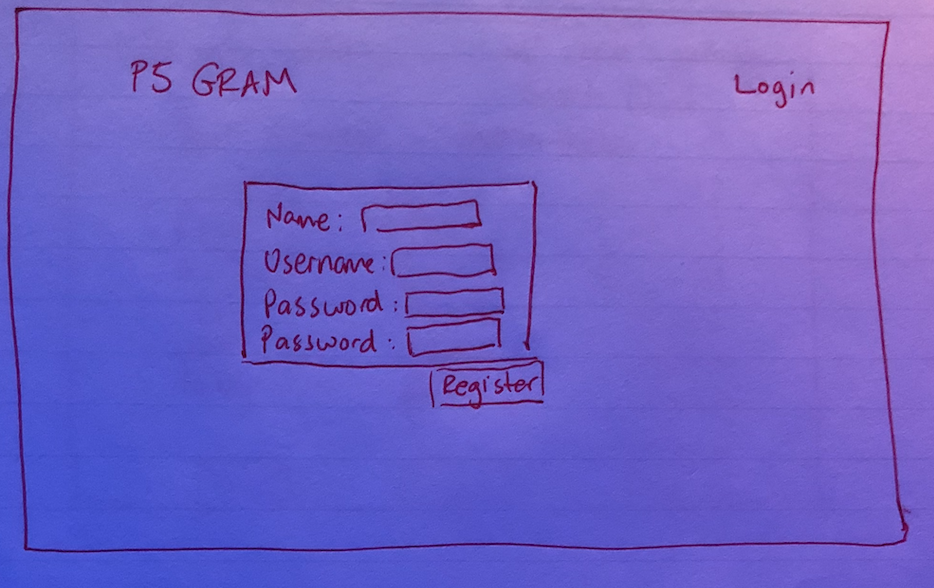 P5 GRAM Login
Name:
Username:
Password:
Password:
Register